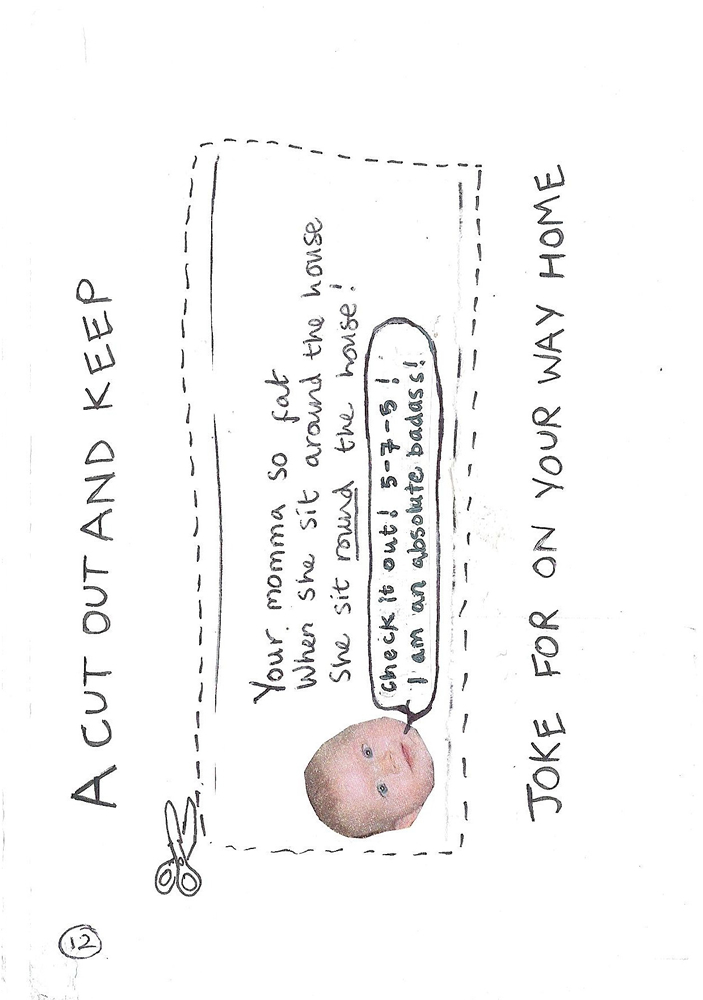 A CUT OUT AND KEEP
Your momma so fat
When she sit around the house
She sit round the house!
Check it out! 5-7-5!
I am an absolute badass!
JOKE FOR ON YOUR WAY HOME
12